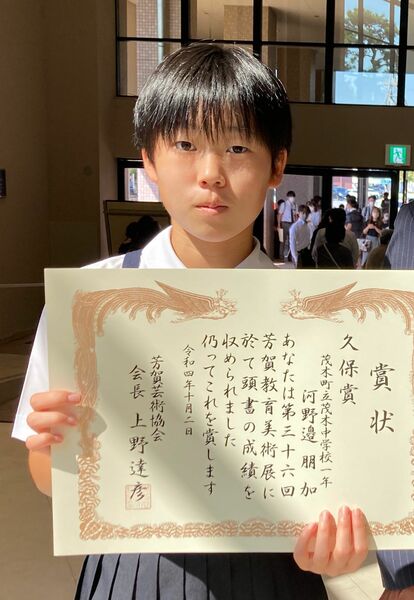 賞状
久保賞
茂木町立茂木中学校一年
河野邉朋加
あなたは第三十六回
芳賀教育美術展に
於て頭書の成績を
収められました
仍ってこれを賞します
令和四年十月二日
芳賀芸術協会
会長 上野達彦